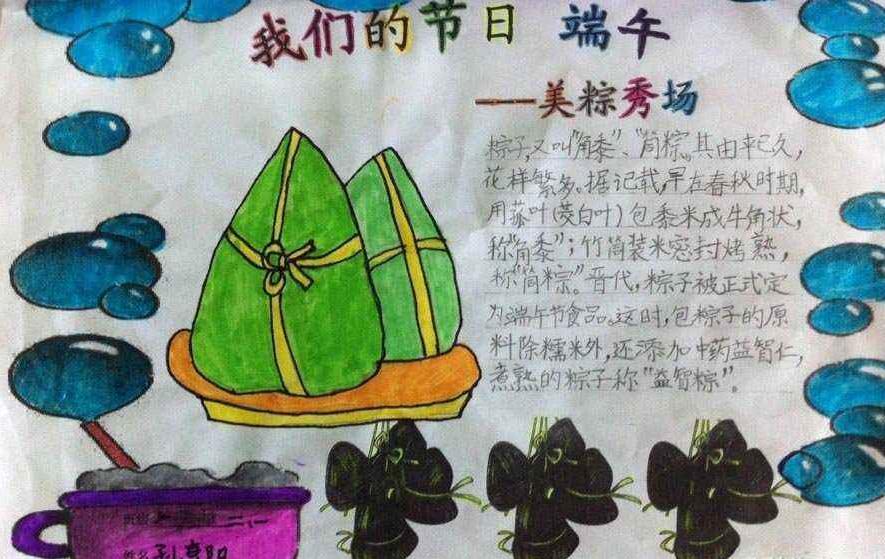 我们的节日 端午
——美粽秀场
粽子,又叫“角黍”、“筒粽”。其由来已久,
花样繁多。据记载,早在春秋时期,
用菰叶(茭白叶)包黍米成牛角状,
称“角黍”；竹筒装米密封烤熟,
称“筒粽”。晋代,粽子被正式定
为端午节食品。这时,包粽子的原
料除糯米外,还添加中药益智仁,
煮熟的粽子称“益智粽”。
二、1
姓名